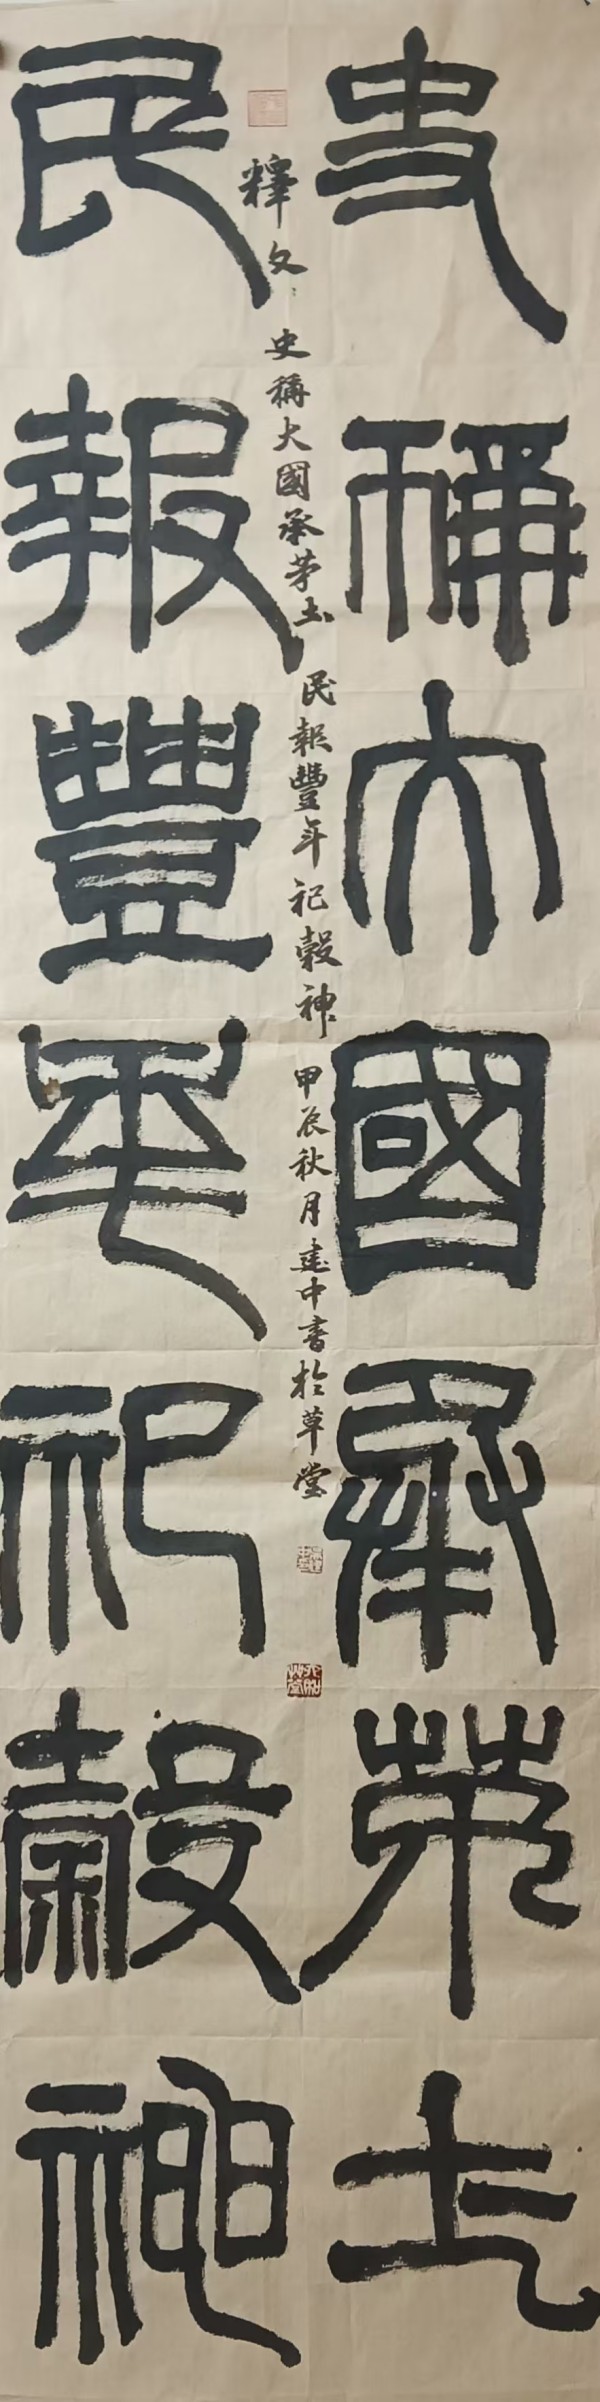 史稱大國承茅土
釋文 史稱大國承茅土 民報豐年祀穀神 甲辰秋月建中書於草堂
民報豐年祀穀神